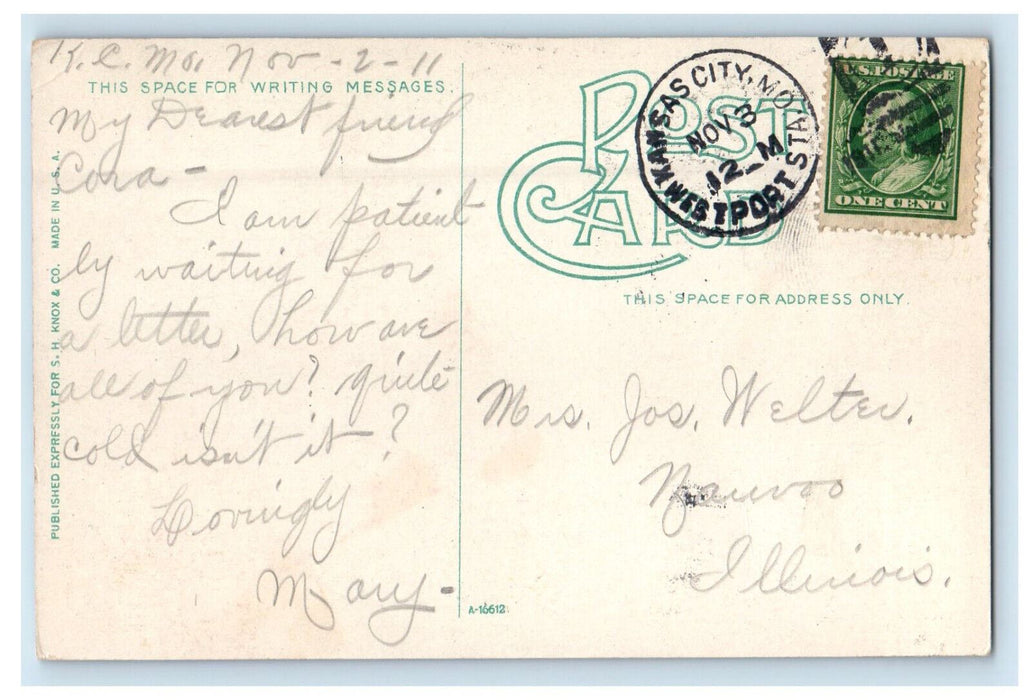 K.C. Mo, Nov - 2 - 11
THIS SPACE FOR WRITING MESSAGES.
My Dearest friend
Cora -
I am patient
ly waiting for
a letter, how are
all of you? quite
cold isn't it?
Lovingly
Mary -
PUBLISHED EXPRESSLY FOR S. H. KNOX & CO. MADE IN U. S. A.
A-16612
POST CARD
KANSAS CITY, MO.
NOV 3
12-M
WESTPORT STA.
U.S. POSTAGE
ONE CENT
THIS SPACE FOR ADDRESS ONLY.
Mrs. Jos. Welter.
Nauvoo
Illinois.